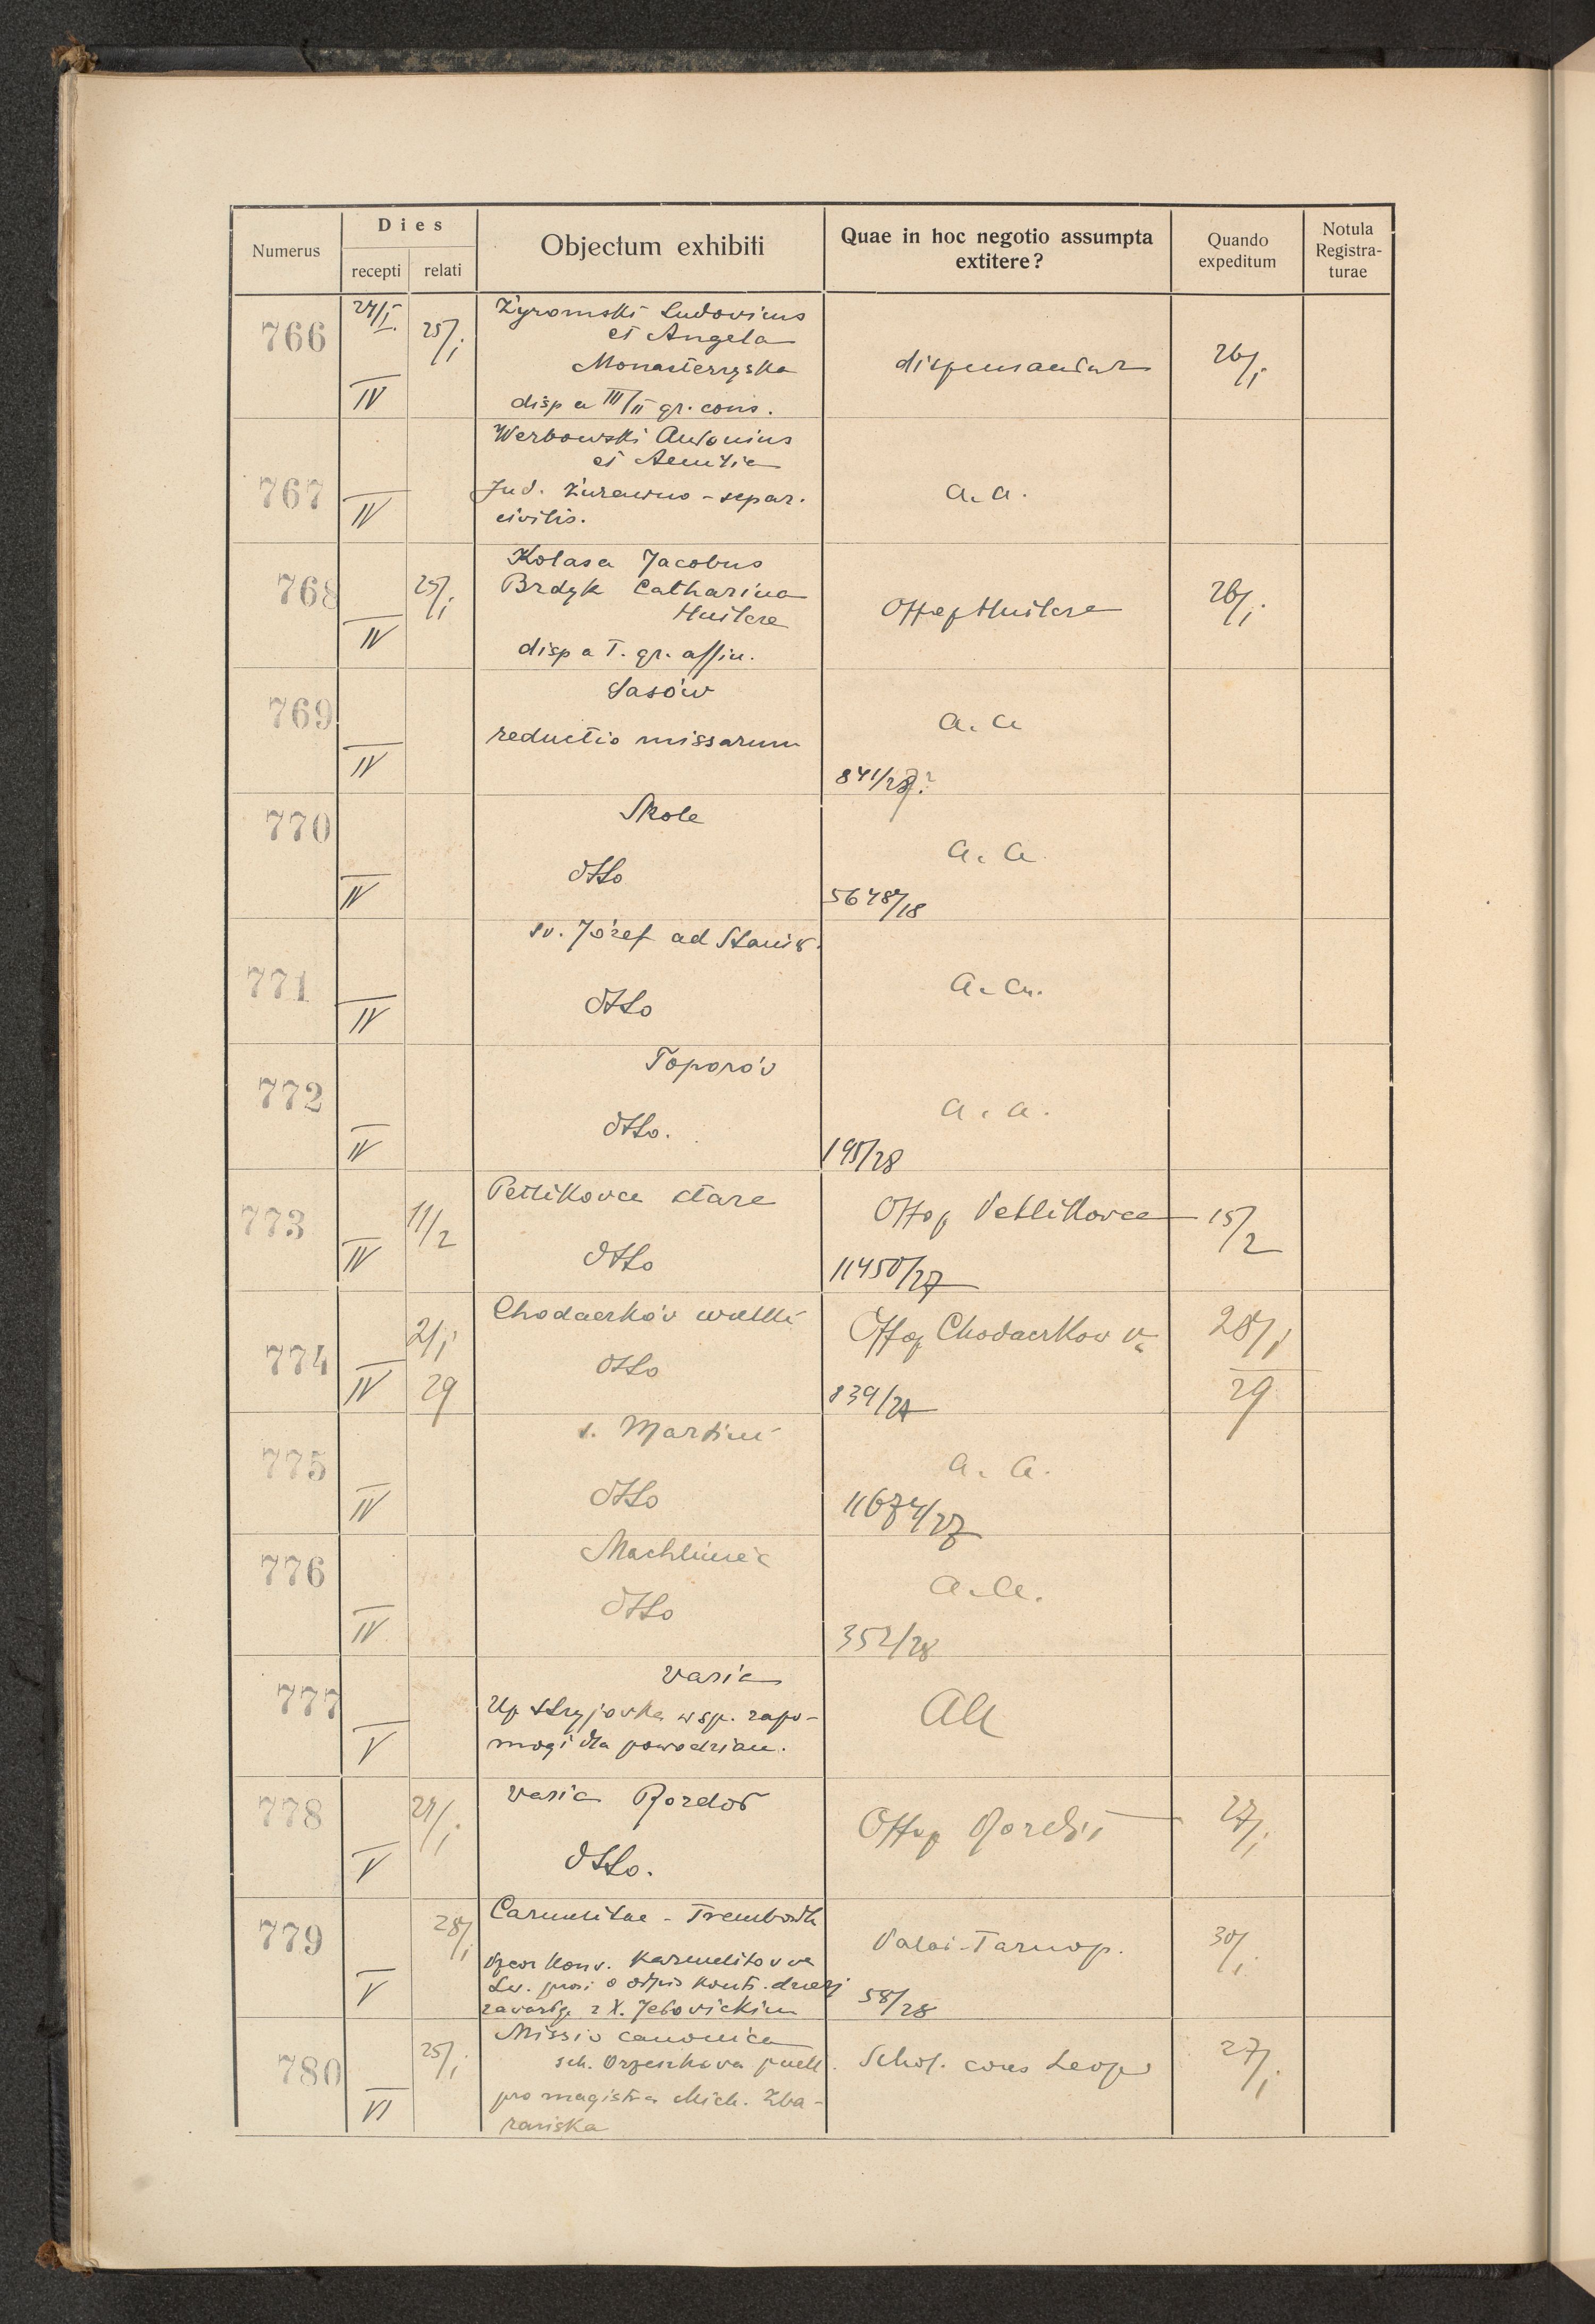 Numerus
Dies
recepti relati
Objectum exhibiti
Quae in hoc negotio assumpta
extitere?
Quando
expeditum
Notula
Registra-
turae
766 24/I. 25/I Żyromski Ludovicus
et Angela
Monasterzyska
disp a III/II gr. cons.
IV
dispensantur 26/I
767 IV
Werbowski Antonius
et Aemilia
Jud. Żurawno - separ.
civilis.
a. a.
768 IV 25/I
Kolasa Jacobus
Brdyk Catharina
Huilcre
disp a I. gr. affin.
Offop Huilcre 26/I
769 IV
Sasów
reductio missarum
a. a
841/28?
770 IV
Skole
dtto
a. a
5648/18
771 IV
sv. Józef ad Stanisł.
dtto
a. a.
772 IV
Toporóv
dtto.
a. a.
195/28
773 IV 11/2
Petlikovce stare
dtto
Offop Petlikovce 15/2
11450/27
774 IV 21/I 29
Chodaczkóv wielki
dtto
Offop Chodaczkov v. 28/I 29
839/27
775 IV
s. Martini
dtto
a. a.
11674/27
776 IV
Machliniec
dtto
a. a.
352/28
777 V
varia
Up Stryjovka w sp. zapo-
mogi dla powodzian.
aa
778 V 24/I
varia Rozdół
dtto.
Offop 27/I
779 V 28/I
Carmelitae - Trembowla
konv. Karmelitov ve
Lw. prosi o odpis kontr. dzierż
zavartej z X.
Tarnop. 30/I
58/28
780 VI 25/I
Missio canonica
sch. Orzeszkova puell.
pro magistra Mich. Zba-
raniska
Schol. cons Leop 27/I